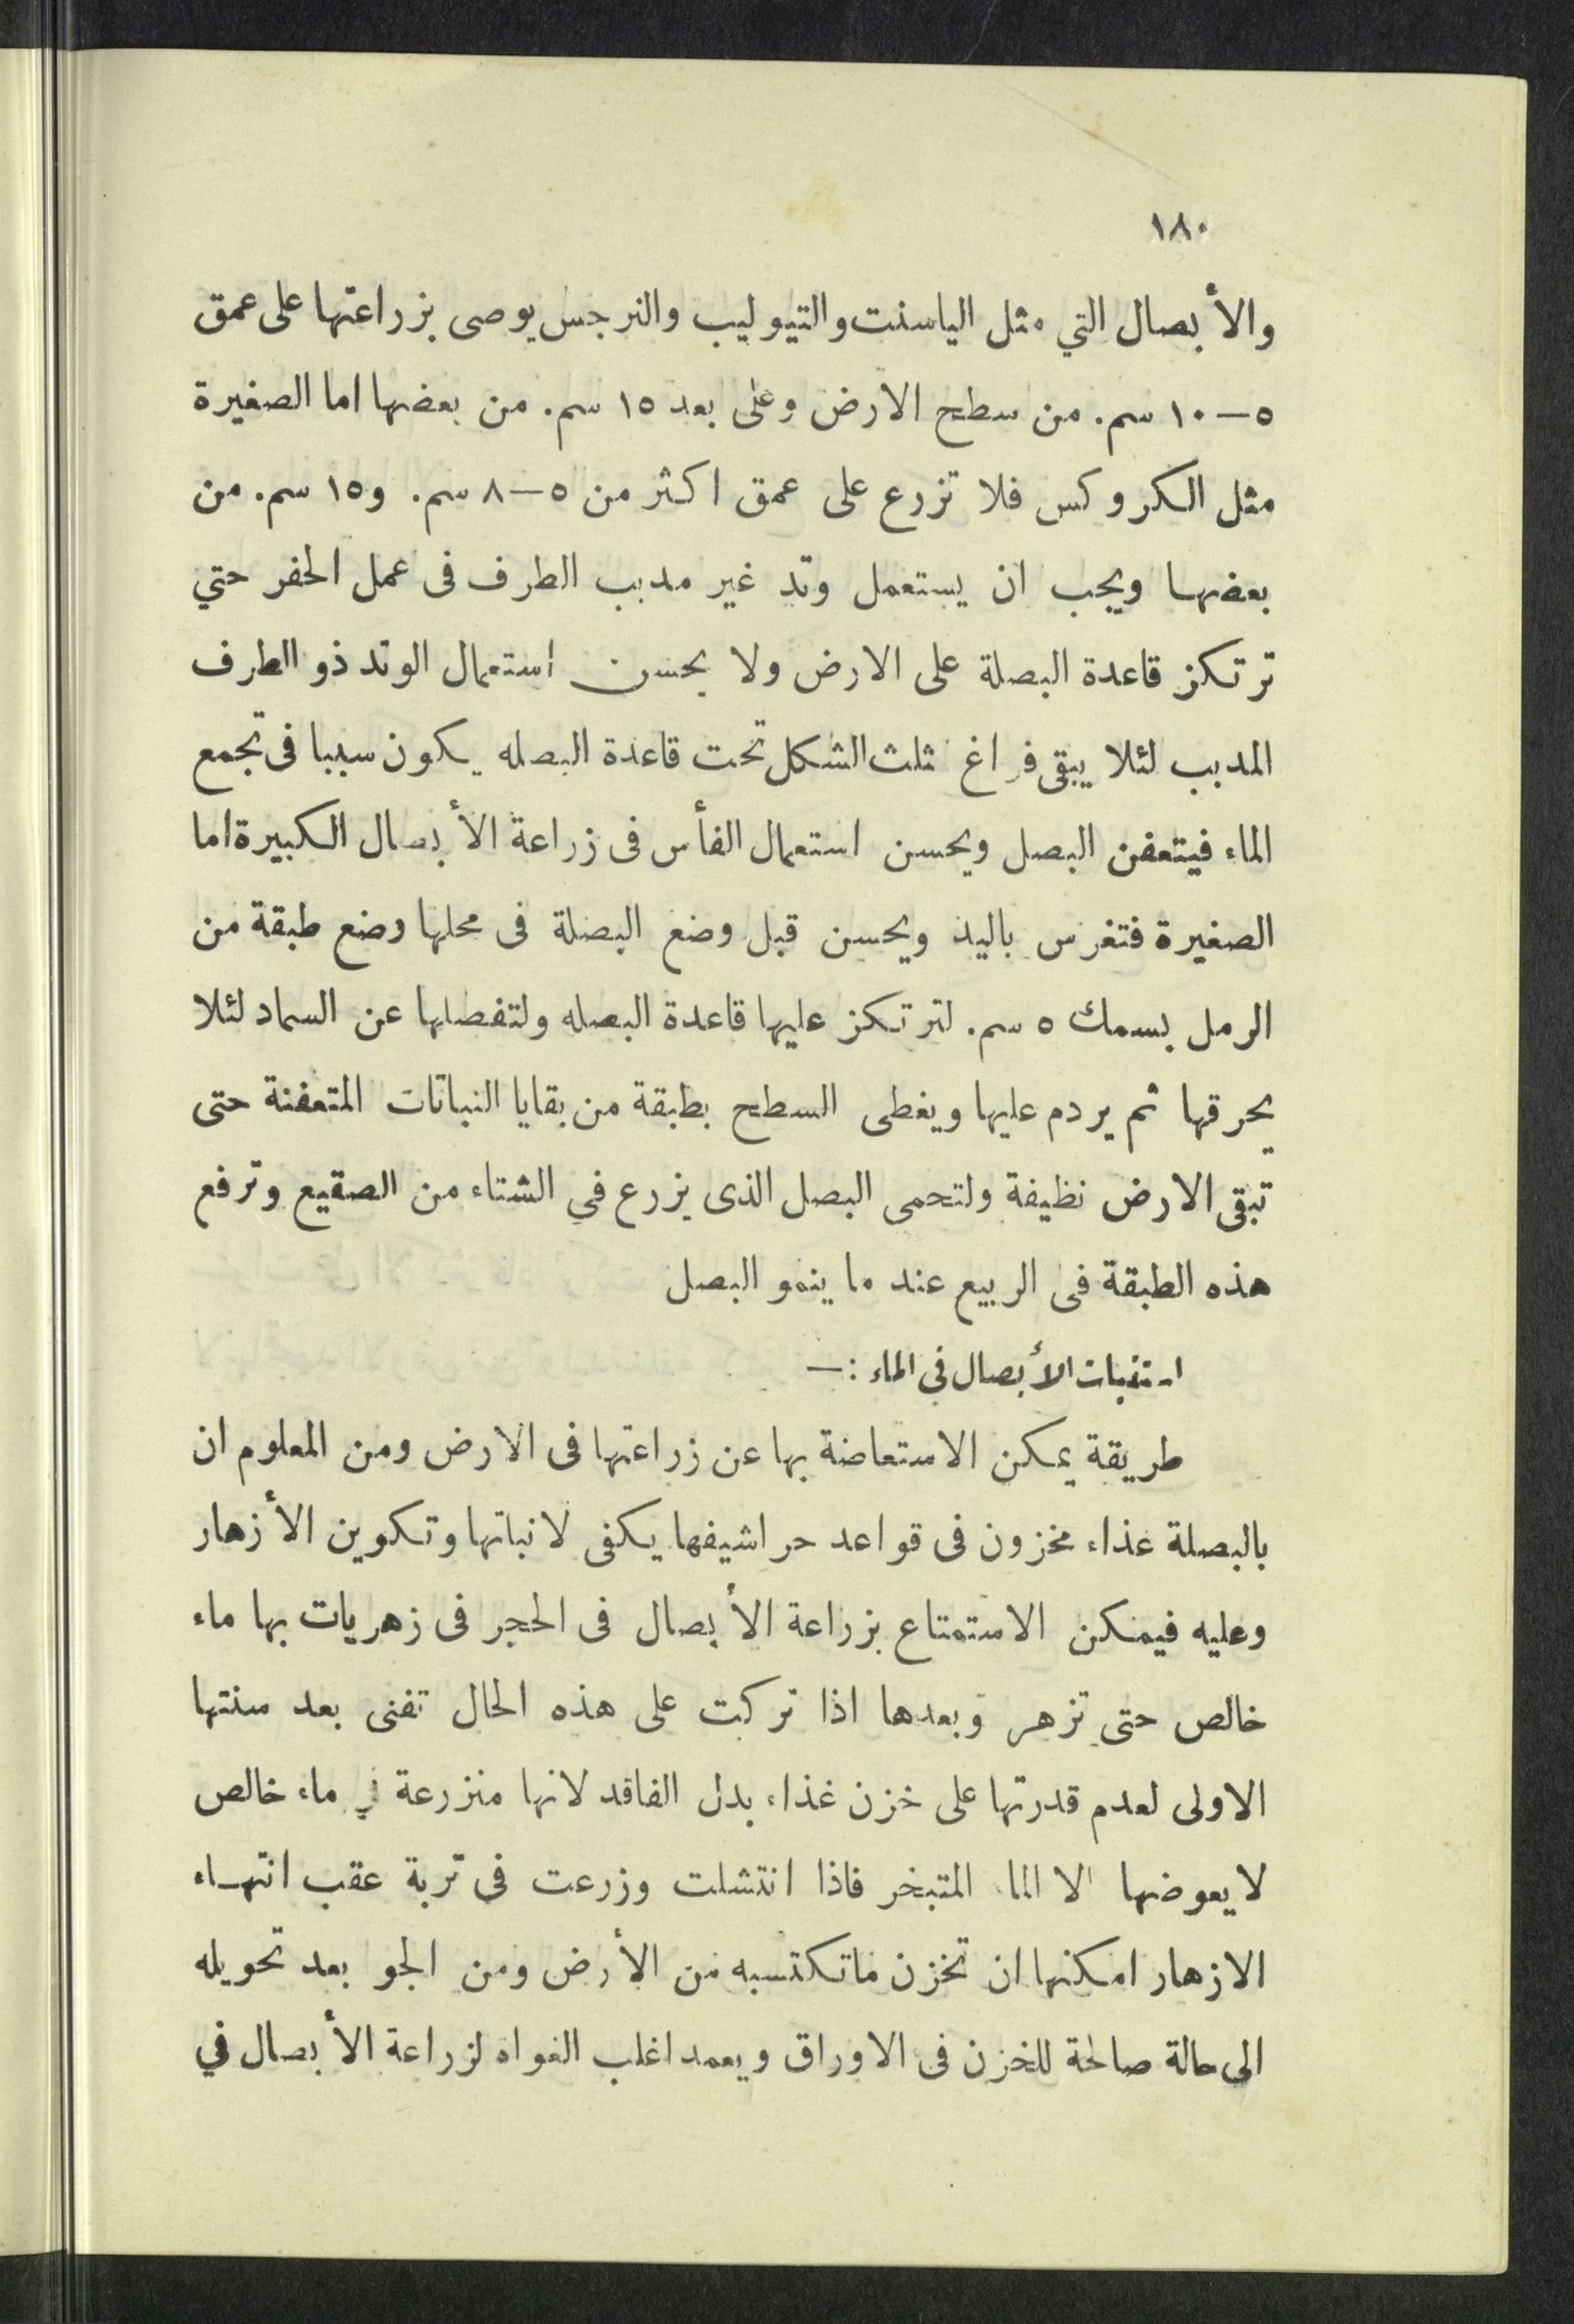 ١٨٠
والأبصال التي مثل الياسنت والتيوليب والنرجس يوصى بزراعتها على عمق
٥—١٠ سم. من سطح الارض وعلى بعد ١٥ سم. من بعضها اما الصغيرة
مثل الكروكس فلا تزرع على عمق اكثر من ٥—٨ سم. و١٥ سم. من
بعضها ويجب ان يستعمل وتد غير مدبب الطرف فى عمل الحفر حتي
ترتكز قاعدة البصلة على الارض ولا يحسن استعمال الوتد ذو الطرف
المدبب لئلا يبقى فراغ مثلث الشكل تحت قاعدة البصله يكون سببا فى تجمع
الماء فيتعفن البصل ويحسن استعمال الفأس فى زراعة الأبصال الكبيرة اما
الصغيرة فتغرس باليد ويحسن قبل وضع البصلة فى محلها وضع طبقة من
الرمل بسمك ٥ سم. لترتكز عليها قاعدة البصله ولتفصلها عن السماد لئلا
يحرقها ثم يردم عليها ويغطى السطح بطبقة من بقايا النباتات المتعفنة حتى
تبقى الارض نظيفة ولتحمى البصل الذى يزرع في الشتاء من الصقيع وترفع
هذه الطبقة فى الربيع عند ما ينمو البصل
استنبات الأبصال فى الماء :—
طريقة يمكن الاستعاضة بها عن زراعتها فى الارض ومن المعلوم ان
بالبصلة غذاء مخزون فى قواعد حراشيفها يكفى لانباتها وتكوين الأزهار
وعليه فيمكن الاستمتاع بزراعة الأبصال فى الحجر فى زهريات بها ماء
خالص حتى تزهر وبعدها اذا تركت على هذه الحال تفنى بعد سنتها
الاولى لعدم قدرتها على خزن غذاء بدل الفاقد لانها منزرعة في ماء خالص
لا يعوضها الا الماء المتبخر فاذا انتشلت وزرعت فى تربة عقب انتهاء
الازهار امكنها ان تخزن ماتكتسبه من الأرض ومن الجو بعد تحويله
الى حالة صالحة للخزن فى الاوراق ويعمد اغلب الغواه لزراعة الأبصال في